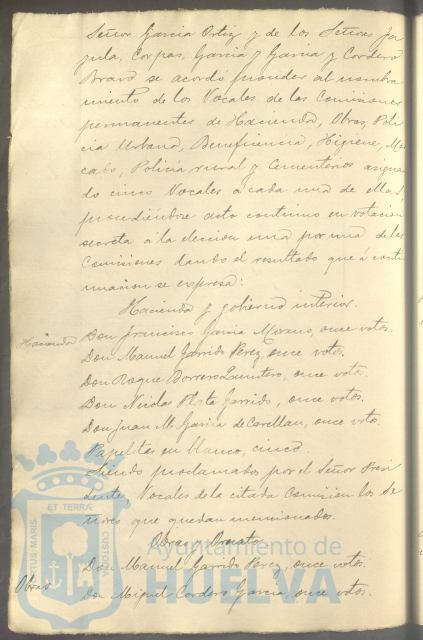 Señor Garcia Ortiz y de los Señores Ja
gula, Corpas, Garcia y Garcia y Cordero
Bravo se acordó proceder al nombra
miento de los Vocales de las Comisiones
permanentes de Hacienda, Obras, Poli
cia Urbana, Beneficencia, Higiene, Mer
cado, Policia rural y Cementerios asignan
do cinco Vocales a cada una de ellas,
procediéndose acto continuo en votacion
secreta á la eleccion una por una de las
Comisiones dando el resultado que á conti
nuacion se expresa:
Hacienda y gobierno interior.
Hacienda
Don Francisco Garcia Morano, once votos.
Don Manuel Garrido Perez, once votos.
Don Roque Borrero Quintero, once votos.
Don Nicolas Plata Garrido, once votos.
Don Juan M. Garcia de Casellan, once votos.
Papeletas en blanco, cinco.
Siendo proclamados por el Señor Presi
dente, Vocales de la citada Comision los Se
ñores que quedan mencionados.
Obras y Ornato
Don Manuel Garrido Perez, once votos.
Obras
Don Miguel Cordero Garcia, once votos.
Ayuntamiento de
HUELVA
PORTUS MARIS
ET TERRÆ
CUSTODIA